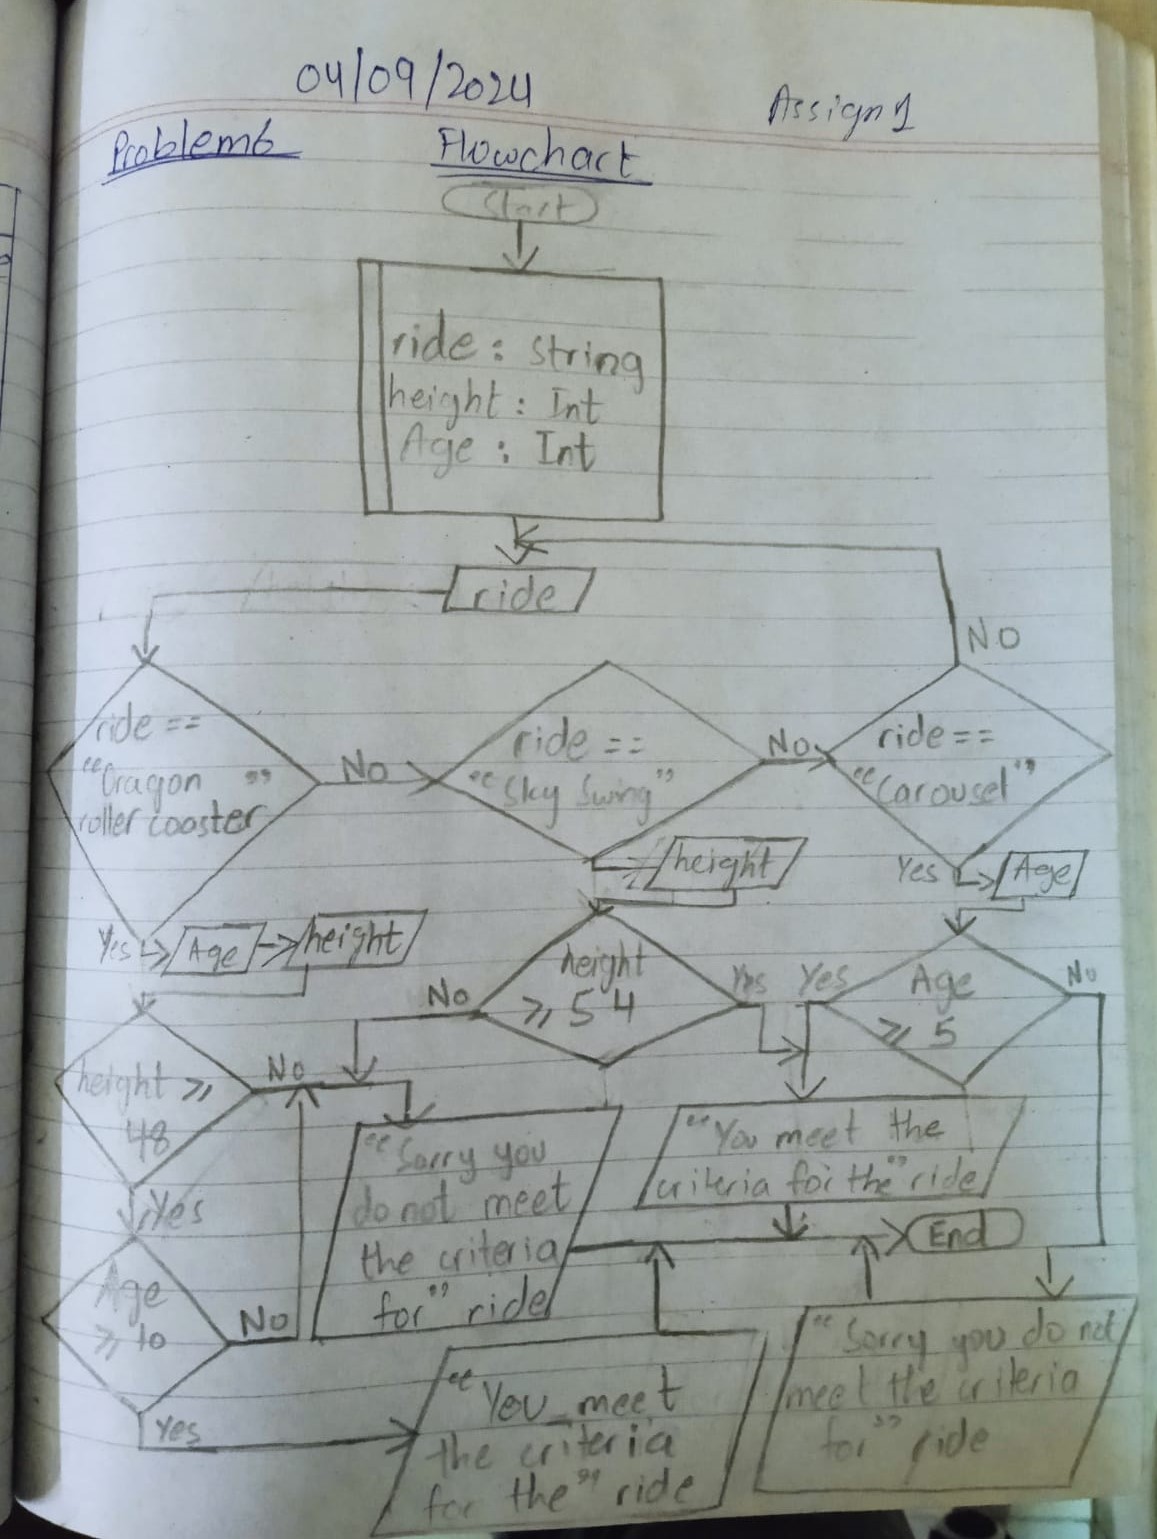 04/09/2024
Assign 1
Problem 6
Flowchart
Start
ride : String
height : Int
Age : Int
ride
NO
ride ==
"Dragon "
roller cooster
No
ride ==
"Sky Swing"
No
ride ==
"Carousel"
height
Yes
Age
Yes
Age
height
No
height
≥ 54
Yes
Yes
Age
≥ 5
No
height ≥
48
No
"Sorry you
do not meet
the criteria
for" ride
"You meet the
criteria for the" ride
Yes
End
Age
≥ 10
No
"Sorry you do not
meet the criteria
for" ride
Yes
"You meet
the criteria
for the" ride